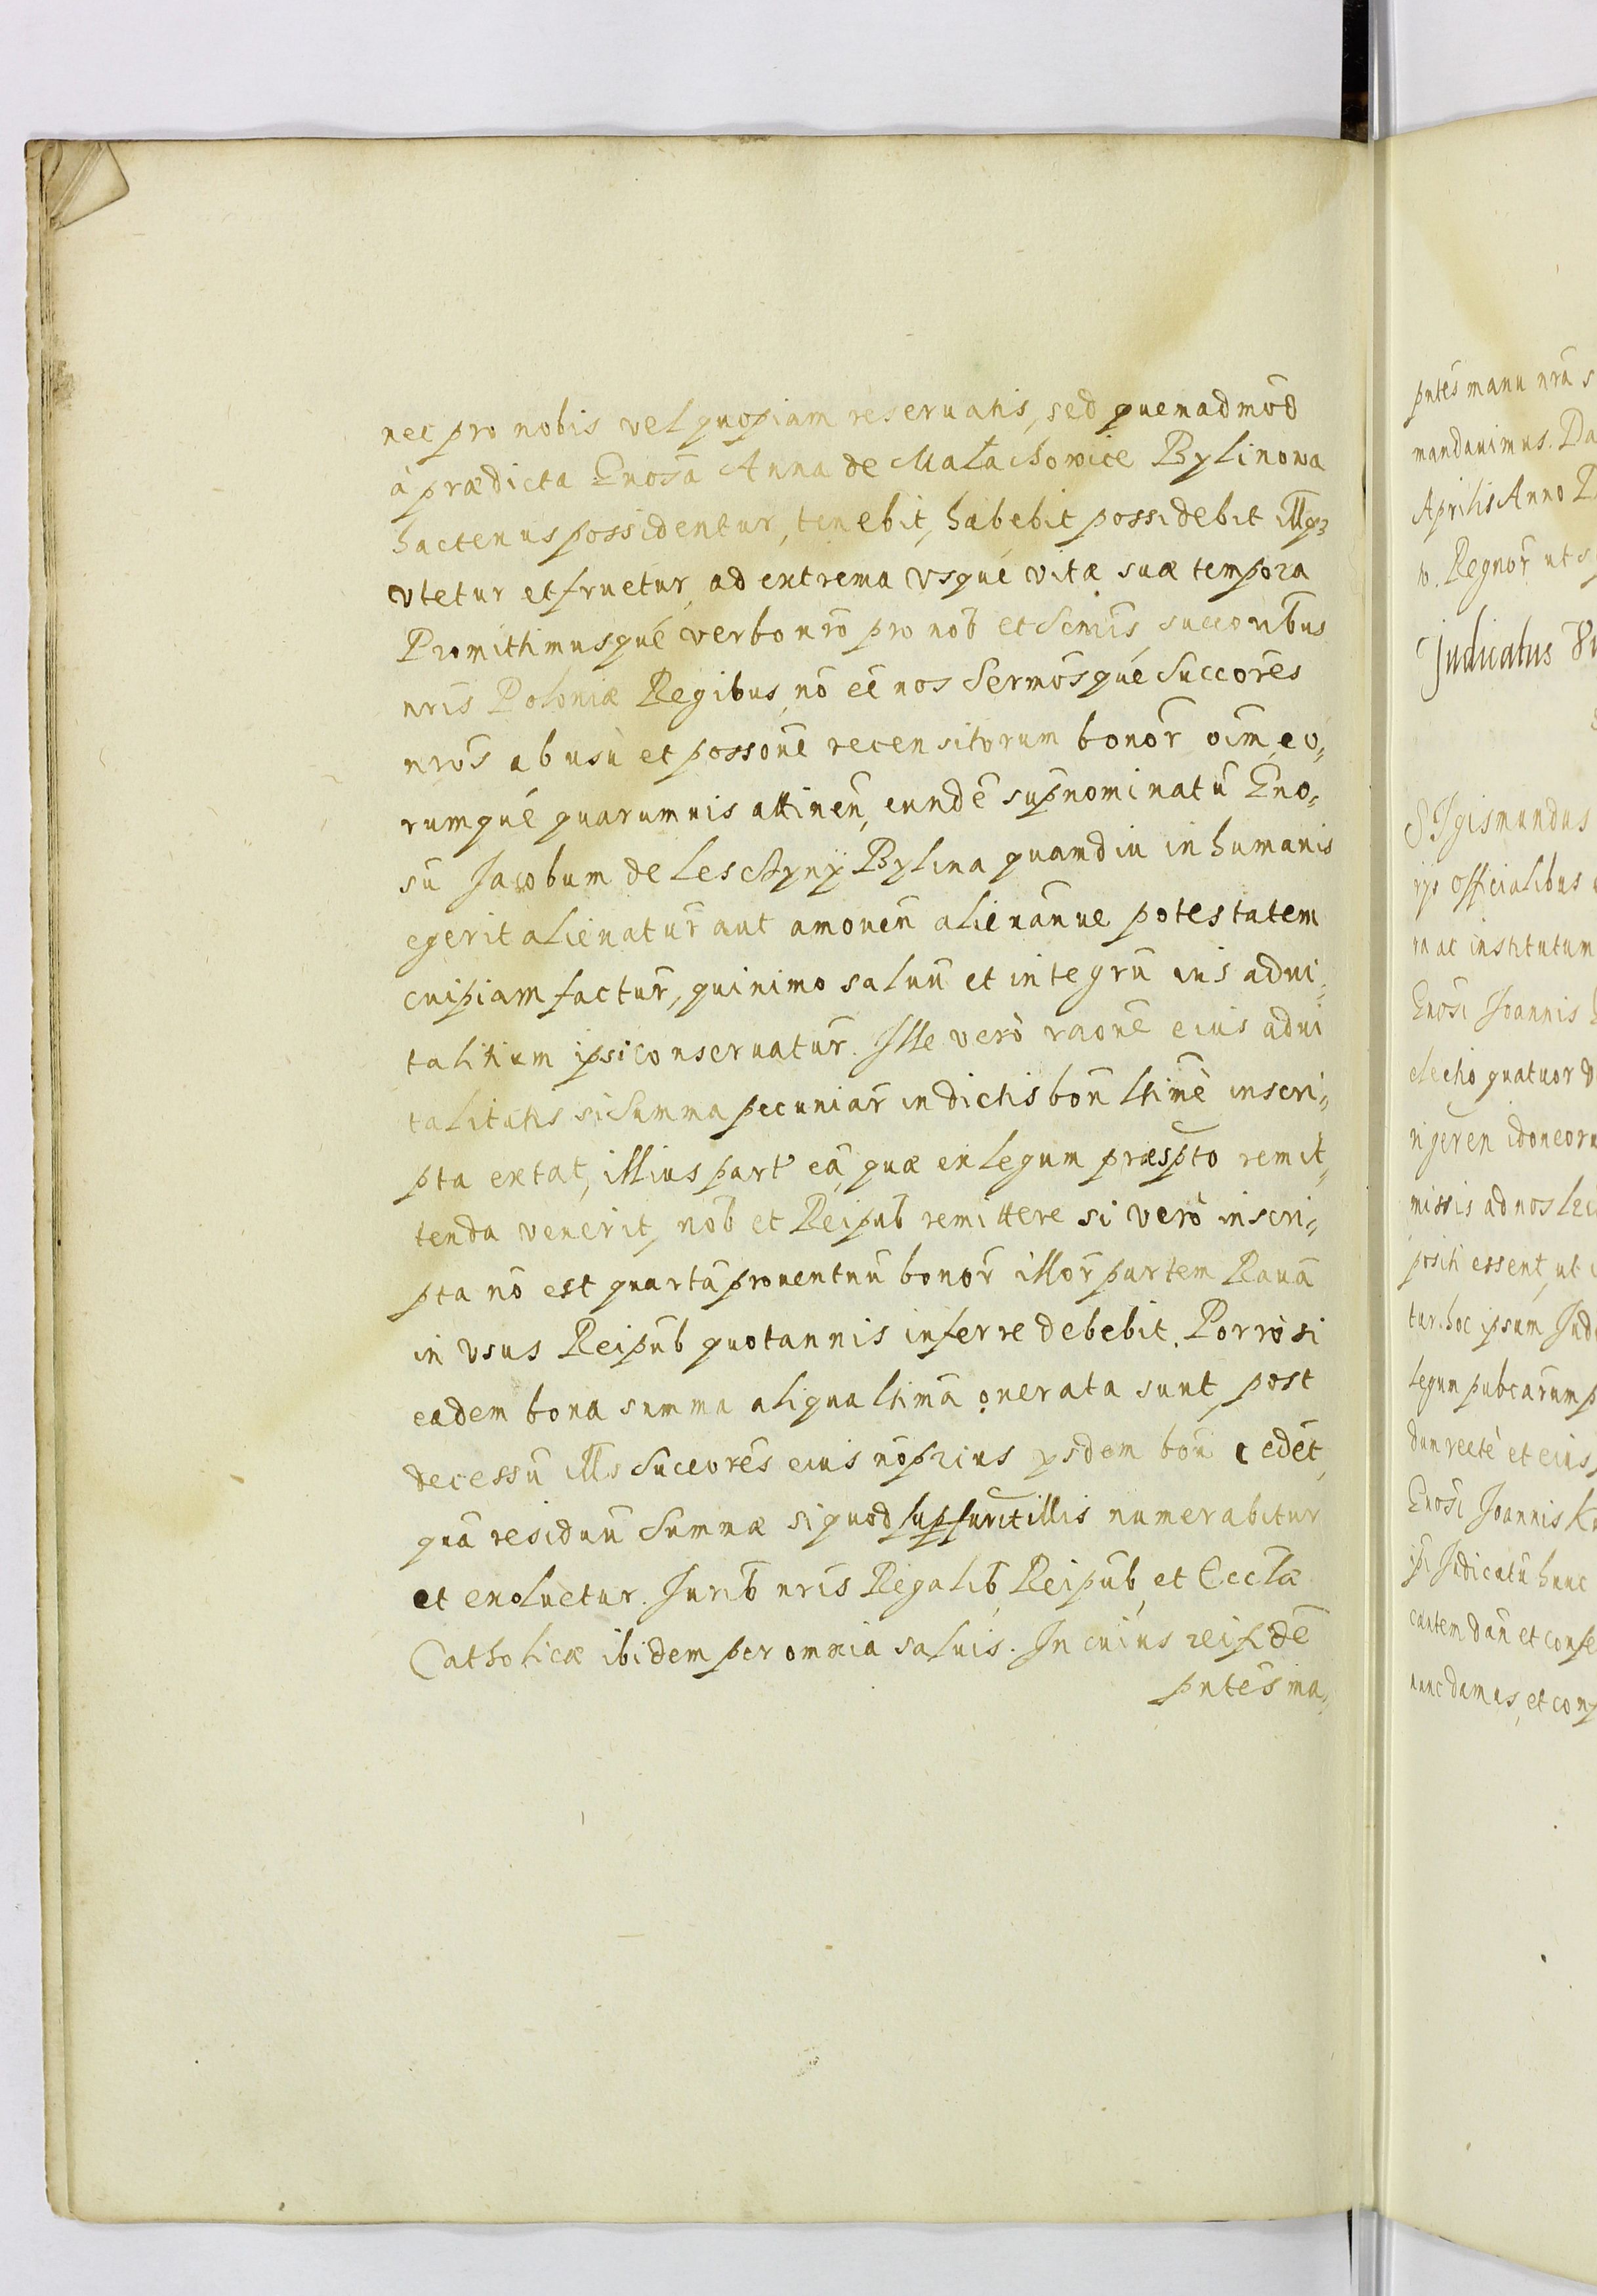 nec pro nobis vel quopiam reseruatis, sed quemadmod̄
à prædicta Gnosā Anna de Małachowice Bylinowa
hactenus possidentur, tenebit, habebit possidebit illisq3
vtetur et fruetur, ad extrema vsque vitæ suæ tempora
Promittimusqué verbo nrō pro nob̄ et Sermīs succorībus
nrīs Poloniæ Regibus, nō eē nos Sermōsqué Succorēs
nrōs ab usu et possonē recensitorum bonor̄ oīm, eo„
rumqué quarumuis attinen̄, eundē sup̄nominatū Gno„
sū Jacobum de Leschyny Bylina quamdiu in humanis
egerit alienatur̄ aut amouen̄ alienan̄ue potestatem
cuipiam factur̄, quinimo saluū et integrū ius adui„
talitium ipsi conseruatur̄. Ille verò raonē eius adui
talitatis si Summa pecuniar̄ in dictis bon̄ lttimē inscri„
pta extat, illius part' eā, quæ ex legum præsp̄to remit„
tenda venerit, nob̄ et Reipub̄ remittere si verò inscri„
pta nō est quartā prouentuū bonor̄ illor̄ partem Rauā
in vsus Reipub̄ quotannis inferre debebit. Porrò si
eadem bona summa aliqua lttimā onerata sunt, post
decessū illīs Succorēs eius nō prius ysdem bon̄ cedet,
quā residuū Summæ si quod sup̄fuerit illis numerabitur
et exoluetur. Jurib̄ nrīs Regalib̄, Reipub̄, et Eccla
Catholicæ ibidem per omnia saluis. In cuius rei fidē
pntēs ma„
pntēs manu nrā s
mandauimus. Da
Aprilis Anno D
v. Regnor̄ nt̄ s
Judicatus
SIgismundus
rys officialibus
ra ac institutum
Gnosī Joannis
electio quatuor
rigeren idoneor
missis ad nos
positi essent, ut
tur. hoc ipsum Jud
legum pubcarum p
dum rectè et eius
Gnosī Joannis K
ipī Judicatū hunc
cartem dan̄ et confe
nunc damus, et con